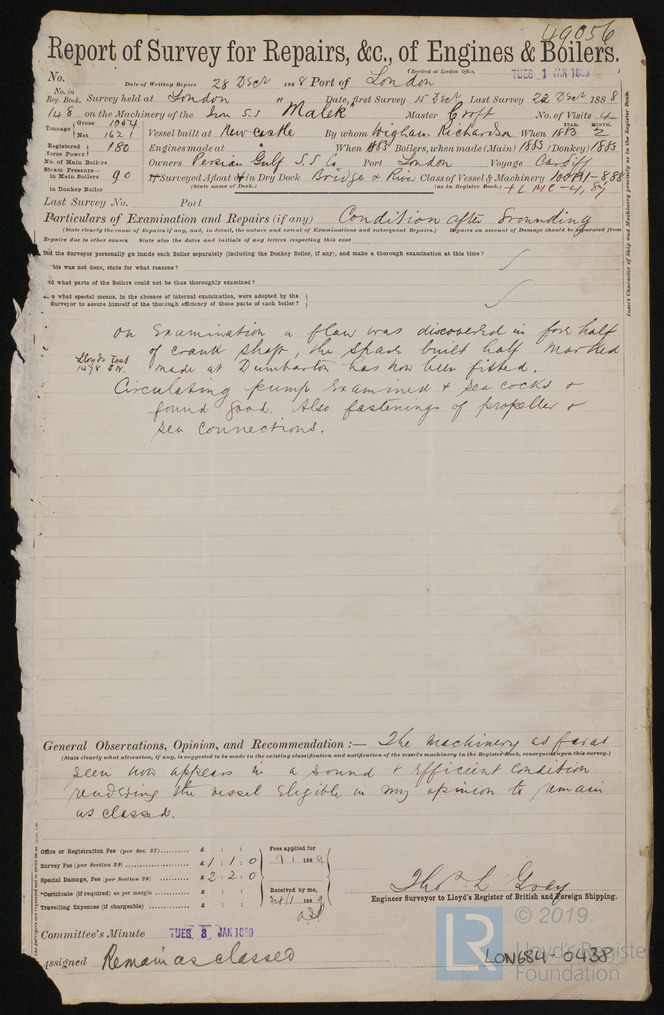 49056
Report of Survey for Repairs, &c., of Engines & Boilers.
(Received at London Office, TUES 1 JAN 1889 )
No.
Date of Writing Report 28 Decr 1888 Port of London
No. in Reg. Book. Survey held at London " Date, first Survey 15 Decr Last Survey 22 Decr 1888
148 on the Machinery of the Iron S.S Malek Master Croft No. of Visits 4
Tonnage Gross Net 1621 Vessel built at Newcastle By whom Wigham Richardson When YEAR. 1883 MONTH. 2
Registered Horse Power 180 Engines made at " When 1883 Boilers, when made (Main) 1883 (Donkey) 1883
No. of Main Boilers Owners Persian Gulf S.S Co Port London Voyage Cardiff
Steam Pressure— in Main Boilers 90 If Surveyed Afloat or in Dry Dock Bridge & River Class of Vessel & Machinery 100A1-8.88
in Donkey Boiler (State name of Dock.) (as in Register Book.) + LMC-4,87
Last Survey No. Port
Particulars of Examination and Repairs (if any) Condition after Grounding
(State clearly the cause of Repairs if any, and, in detail, the nature and extent of Examinations and subsequent Repairs.) Repairs on account of Damage should be separated from
Repairs due to other causes. State also the dates and initials of any letters respecting this case
Did the Surveyor personally go inside each Boiler separately (including the Donkey Boiler, if any), and make a thorough examination at this time?
this was not done, state for what reasons?
d what parts of the Boilers could not be thus thoroughly examined?
o what special means, in the absence of internal examination, were adopted by the
Surveyor to assure himself of the thorough efficiency of those parts of each boiler?
Insert Character of Ship and Machinery precisely as in the Register Book.
On Examination a flaw was discovered in fore half
of crank shaft, the spare built half marked
Lloyds Test
made at Dumbarton has now been fitted.
Circulating pump Examined & sea cocks &
found good. Also fastenings of propeller &
sea connections.
General Observations, Opinion, and Recommendation :— The Machinery as far as
(State clearly what alteration, if any, is suggested to be made in the existing classification and notification of the vessel's machinery in the Register Book, consequent upon this survey.)
seen now appears in a sound & Efficient condition
rendering the vessel Eligible in my opinion to remain
as classed.
Office or Registration Fee (per Sec. 27) £ : :
Survey Fee (per Section 28) £ 1 : 1 : 0
Special Damage, Fee (per Section 28) £ 2 : 2 : 0
*Certificate (if required) as per margin £ : :
Travelling Expenses (if chargeable) £ : :
Fees applied for
Received by me,
Thos L Gray
Engineer Surveyor to Lloyd's Register of British and Foreign Shipping.
Committee's Minute TUES 8 JAN 1889
Assigned Remain as classed
LON684-0438
© 2019
LR
Lloyd's Register
Foundation